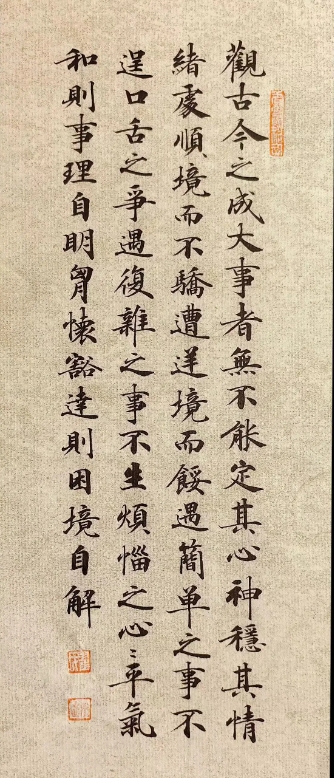 觀古今之成大事者無不能定其心神穩其情
緒處順境而不驕遭逆境而餒遇簡单之事不
逞口舌之爭遇復雜之事不生煩惱之心〻平氣
和則事理自明胷懷豁達則困境自解